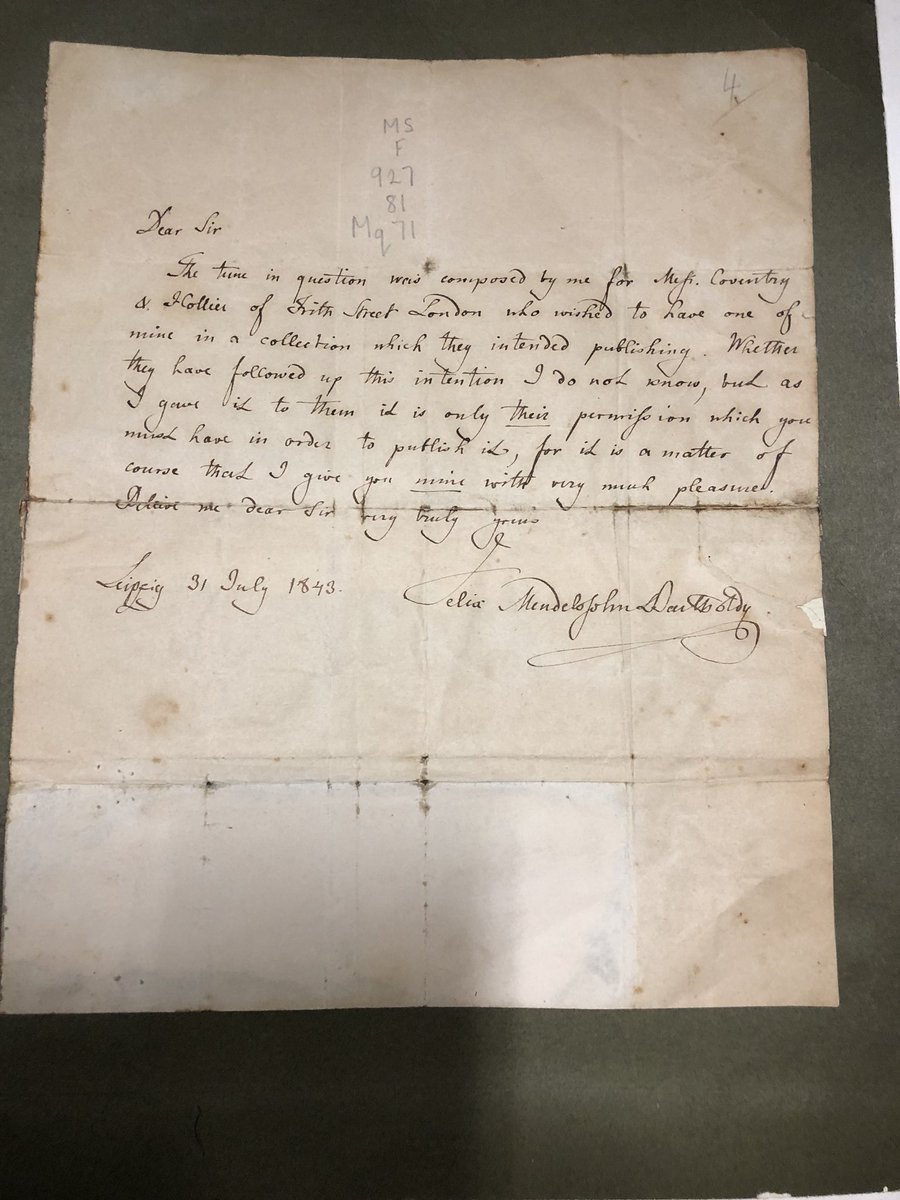 4.
MS
F
927
81
Mq71
Dear Sir
The tune in question was composed by me for Mess. Coventry
& Hollier of Frith Street London who wished to have one of
mine in a collection which they intended publishing. Whether
they have followed up this intention I do not know, but as
I gave it to them it is only their permission which you
must have in order to publish it, for it is a matter of
course that I give you mine with very much pleasure.
Believe me dear Sir very truly yours
Felix Mendelssohn Bartholdy.
Leipzig 31 July 1843.